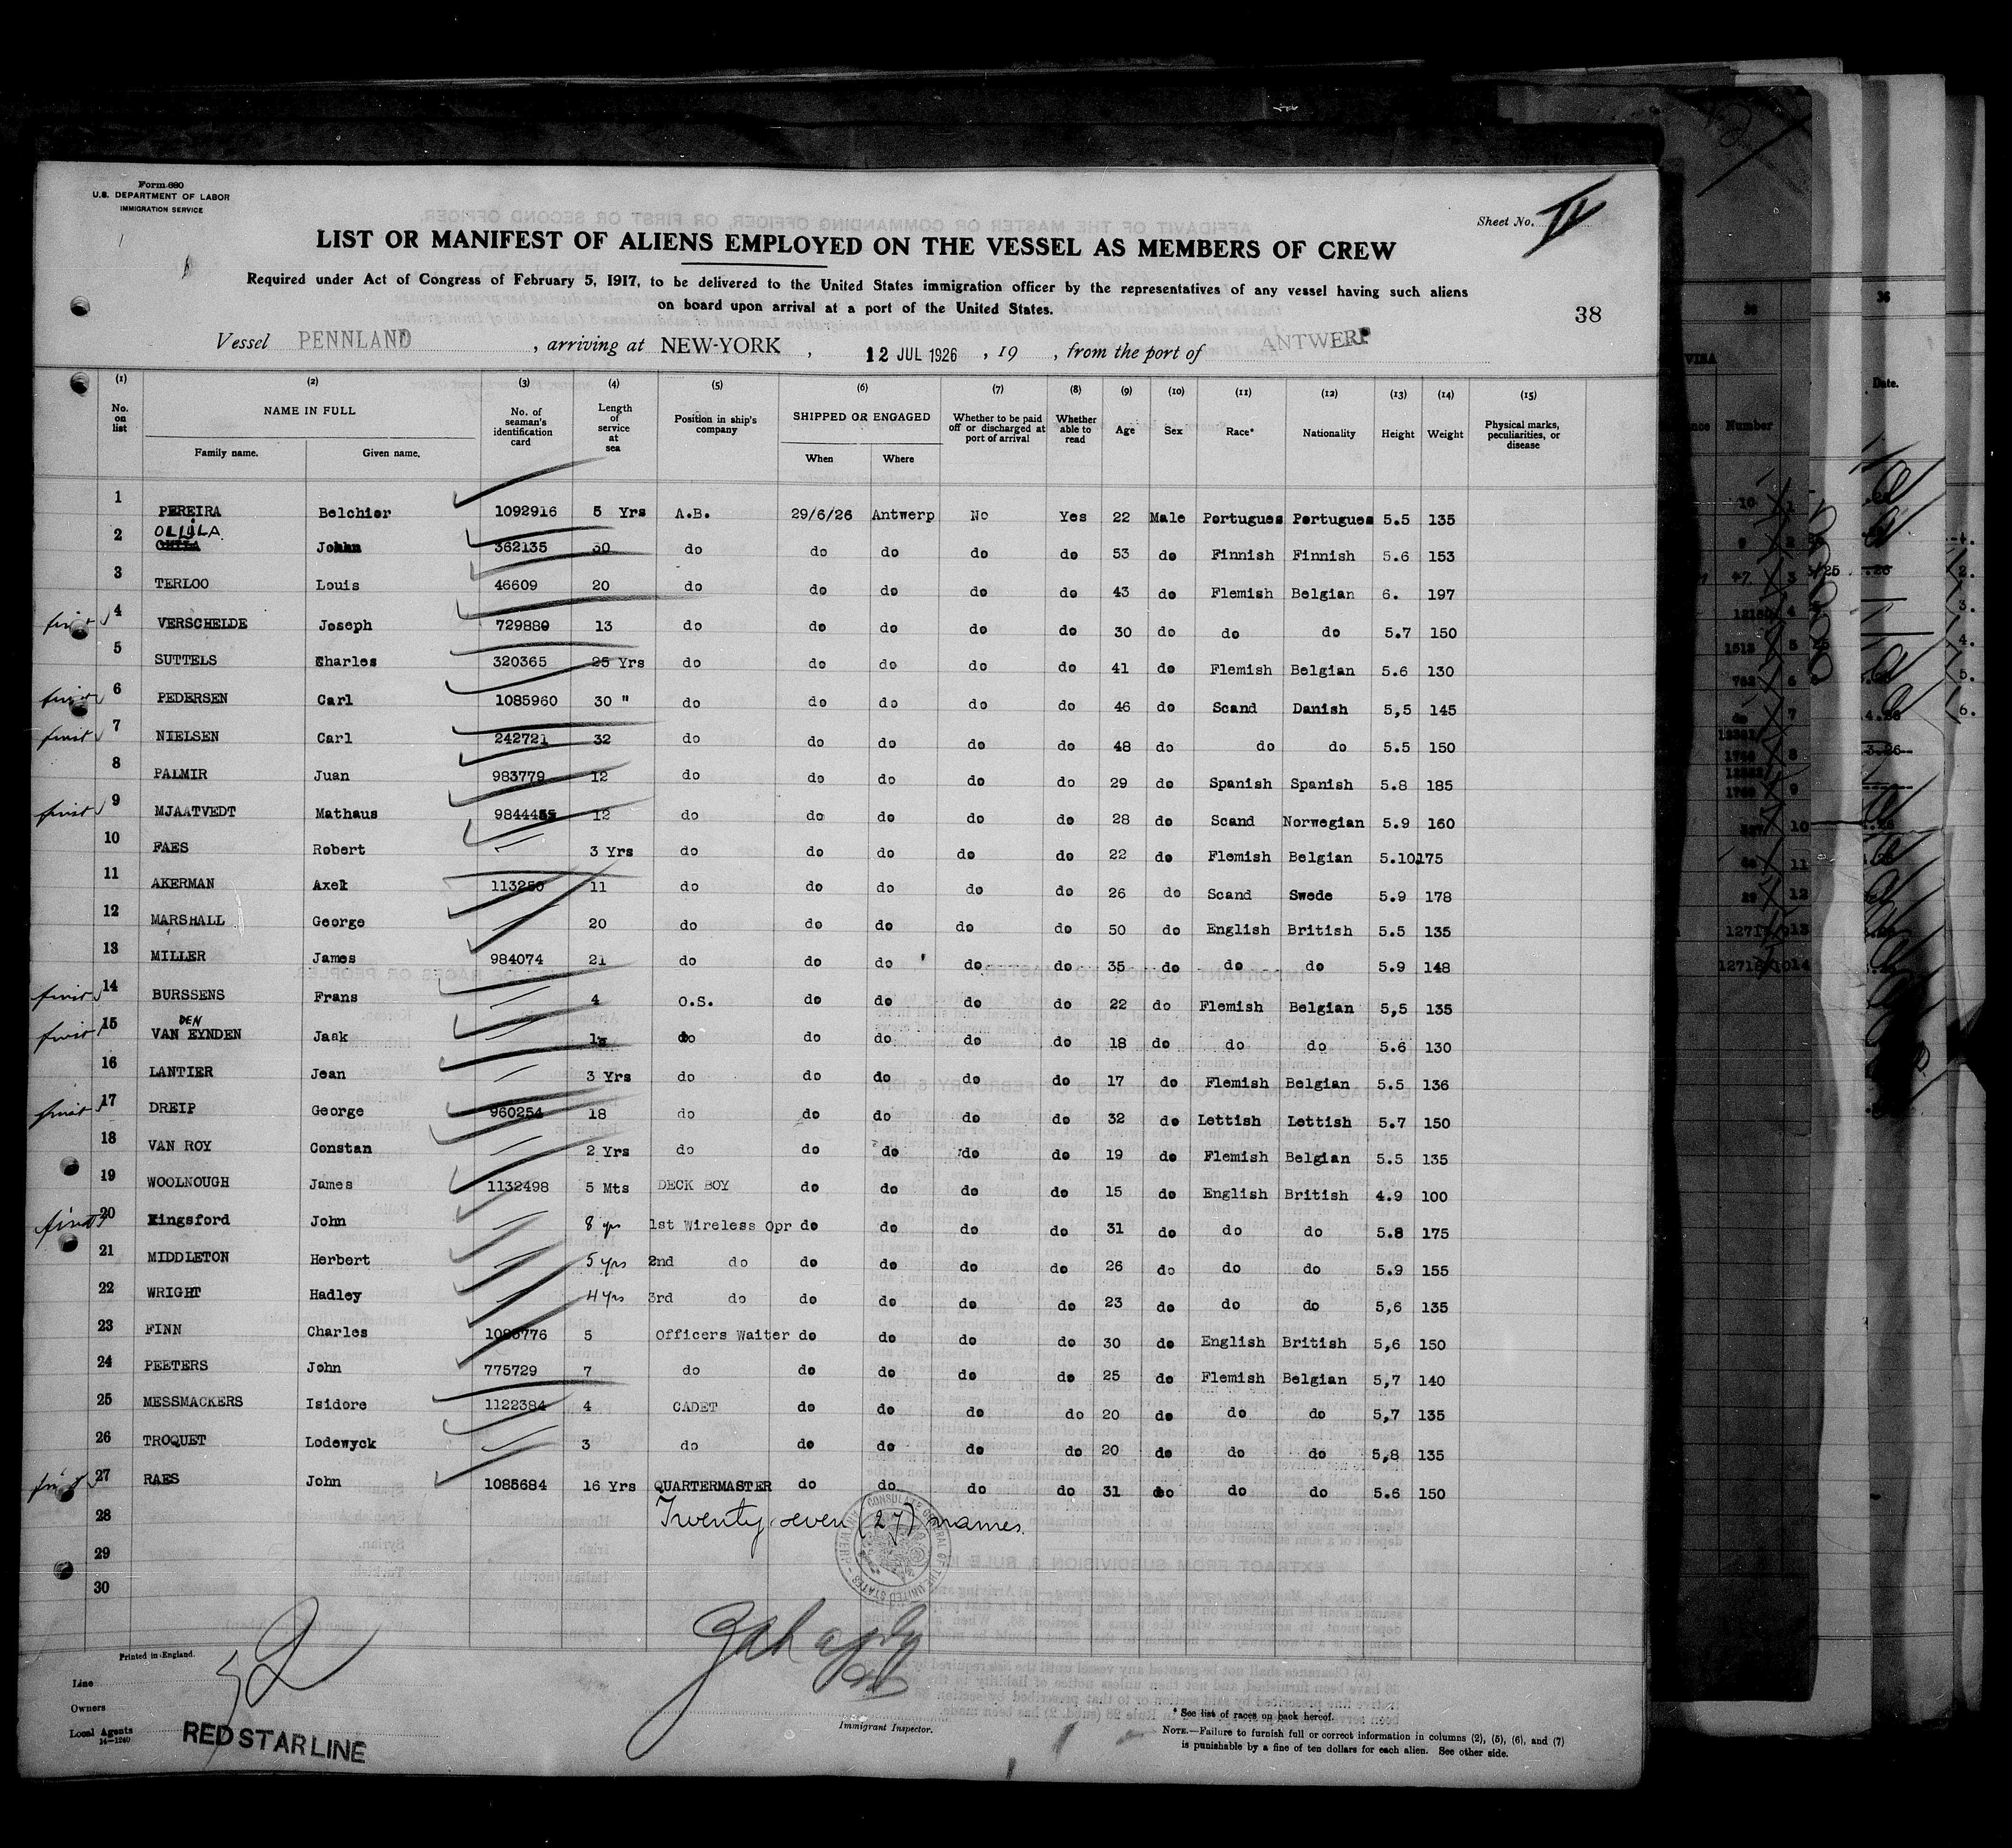 Form 680
U.S. DEPARTMENT OF LABOR
IMMIGRATION SERVICE
Sheet No. IV
LIST OR MANIFEST OF ALIENS EMPLOYED ON THE VESSEL AS MEMBERS OF CREW
Required under Act of Congress of February 5, 1917, to be delivered to the United States immigration officer by the representatives of any vessel having such aliens
on board upon arrival at a port of the United States.
38
Vessel PENNLAND, arriving at NEW-YORK, 12 JUL 1926, 19 , from the port of ANTWERP
(1) (2) (3) (4) (5) (6) (7) (8) (9) (10) (11) (12) (13) (14) (15)
No. on list NAME IN FULL Family name. Given name. No. of seaman's identification card Length of service at sea Position in ship's company SHIPPED OR ENGAGED When Where Whether to be paid off or discharged at port of arrival Whether able to read Age Sex Race* Nationality Height Weight Physical marks, peculiarities, or disease
1 PEREIRA Belchior 1092916 5 Yrs A.B. 29/6/26 Antwerp No Yes 22 Male Portugues Portugues 5.5 135
2 OLLILA John 362135 30 do do do do do 53 do Finnish Finnish 5.6 153
3 TERLOO Louis 46609 20 do do do do do 43 do Flemish Belgian 6. 197
4 VERSCHELDE Joseph 729880 13 do do do do do 30 do do do 5.7 150
5 SUTTELS Charles 320365 25 Yrs do do do do do 41 do Flemish Belgian 5.6 130
6 PEDERSEN Carl 1085960 30 " do do do do do 46 do Scand Danish 5,5 145
7 NIELSEN Carl 242721 32 do do do do do 48 do do do 5.5 150
8 PALMIR Juan 983779 12 do do do do do 29 do Spanish Spanish 5.8 185
9 MJAATVEDT Mathaus 12 do do do do do 28 do Scand Norwegian 5.9 160
10 FAES Robert — 3 Yrs do do do do do 22 do Flemish Belgian 5.10. 175
11 AKERMAN Axel 113250 11 do do do do do 26 do Scand Swede 5.9 178
12 MARSHALL George — 20 do do do do do 50 do English British 5.5 135
13 MILLER James 984074 21 do do do do do 35 do do do 5.9 148
14 BURSSENS Frans — 4 O.S. do do do do 22 do Flemish Belgian 5,5 135
15 VAN DEN EYNDEN Jaak — do do do do do 18 do do do 5.6 130
16 LANTIER Jean — 3 Yrs do do do do do 17 do Flemish Belgian 5.5 136
17 DREIP George 960254 18 do do do do do 32 do Lettish Lettish 5.7 150
18 VAN ROY Constan — 2 Yrs do do do do do 19 do Flemish Belgian 5.5 135
19 WOOLNOUGH James 1132498 5 Mts DECK BOY do do do do 15 do English British 4.9 100
20 Kingsford John — 8 yrs 1st Wireless Opr do do do do 31 do do do 5.8 175
21 MIDDLETON Herbert — 5 yrs 2nd do do do do do 26 do do do 5.9 155
22 WRIGHT Hadley — 4 yrs 3rd do do do do do 23 do do do 5,6 135
23 FINN Charles 1085776 5 Officers Waiter do do do do 30 do English British 5,6 150
24 PEETERS John 775729 7 do do do do do 25 do Flemish Belgian 5,7 140
25 MESSMACKERS Isidore 1122384 4 CADET do do do do 20 do do do 5,7 135
26 TROQUET Lodewyck — 3 do do do do do 20 do do do 5,8 135
27 RAES John 1085684 16 Yrs QUARTERMASTER do do do do 31 do do do 5.6 150
28 Twenty seven (27) names.
29
30
Printed in England.
Line
Owners
Local Agents
14-1240
RED STAR LINE
Immigrant Inspector.
* See list of races on back hereof.
NOTE.—Failure to furnish full or correct information in columns (2), (5), (6), and (7)
is punishable by a fine of ten dollars for each alien. See other side.